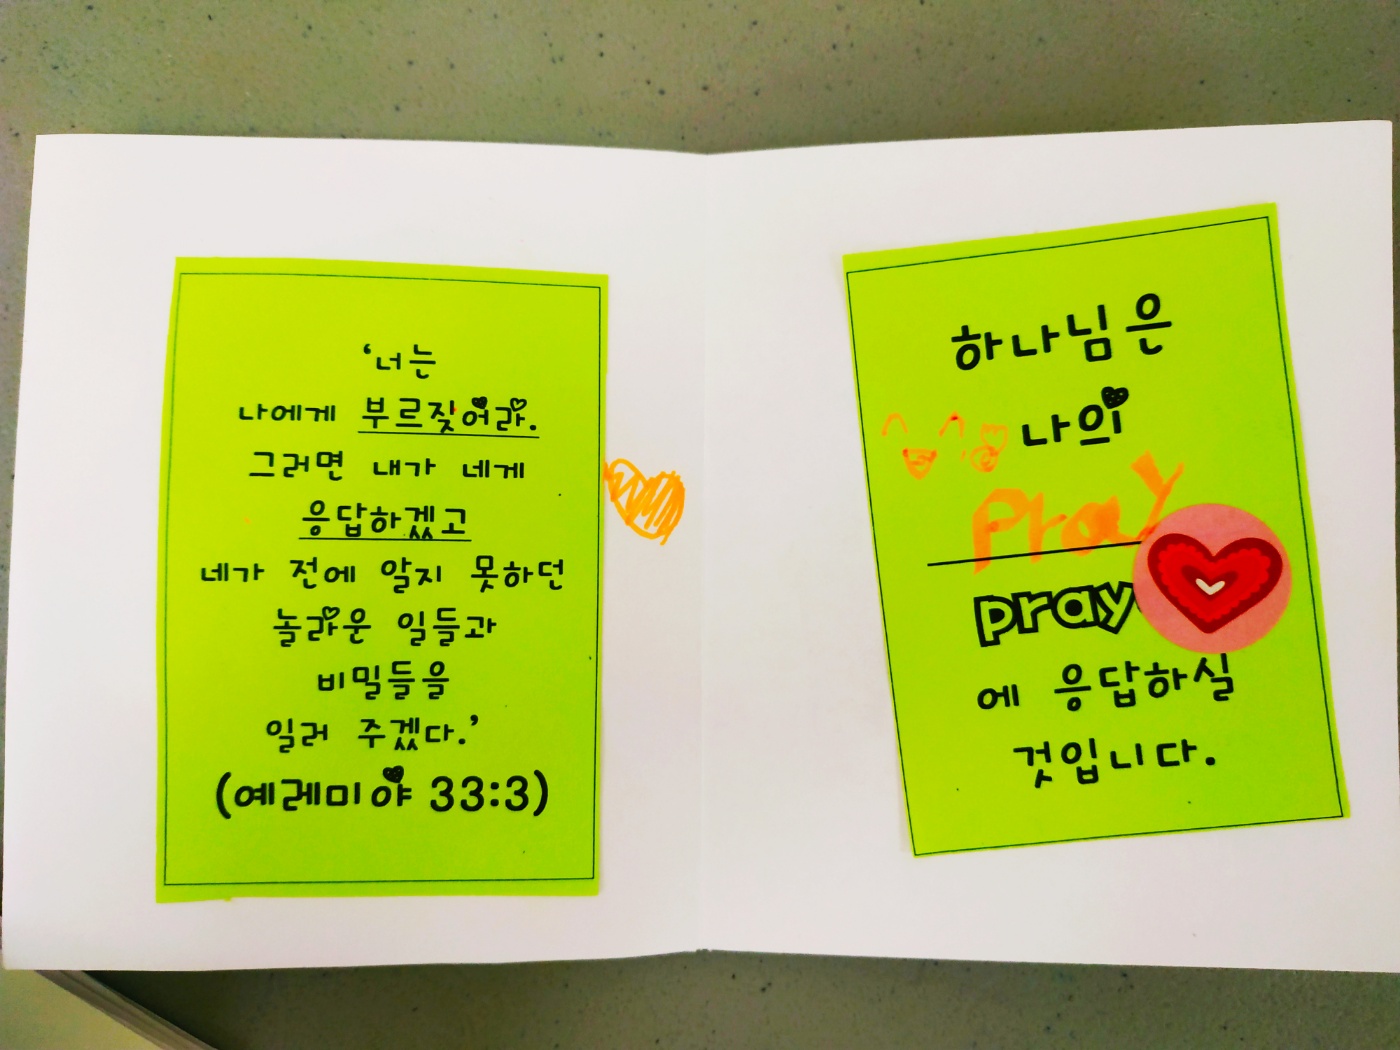 ‘너는
나에게 부르짖어라.
그러면 내가 네게
응답하겠고
네가 전에 알지 못하던
놀라운 일들과
비밀들을
일러 주겠다.’
(예레미야 33:3)
하나님은
나의
Pray
pray
에 응답하실
것입니다.